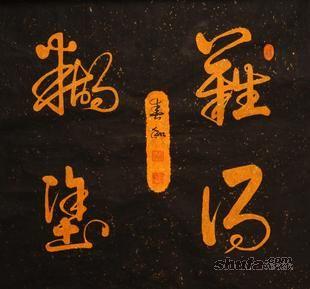 難得
糊塗
shufa.com